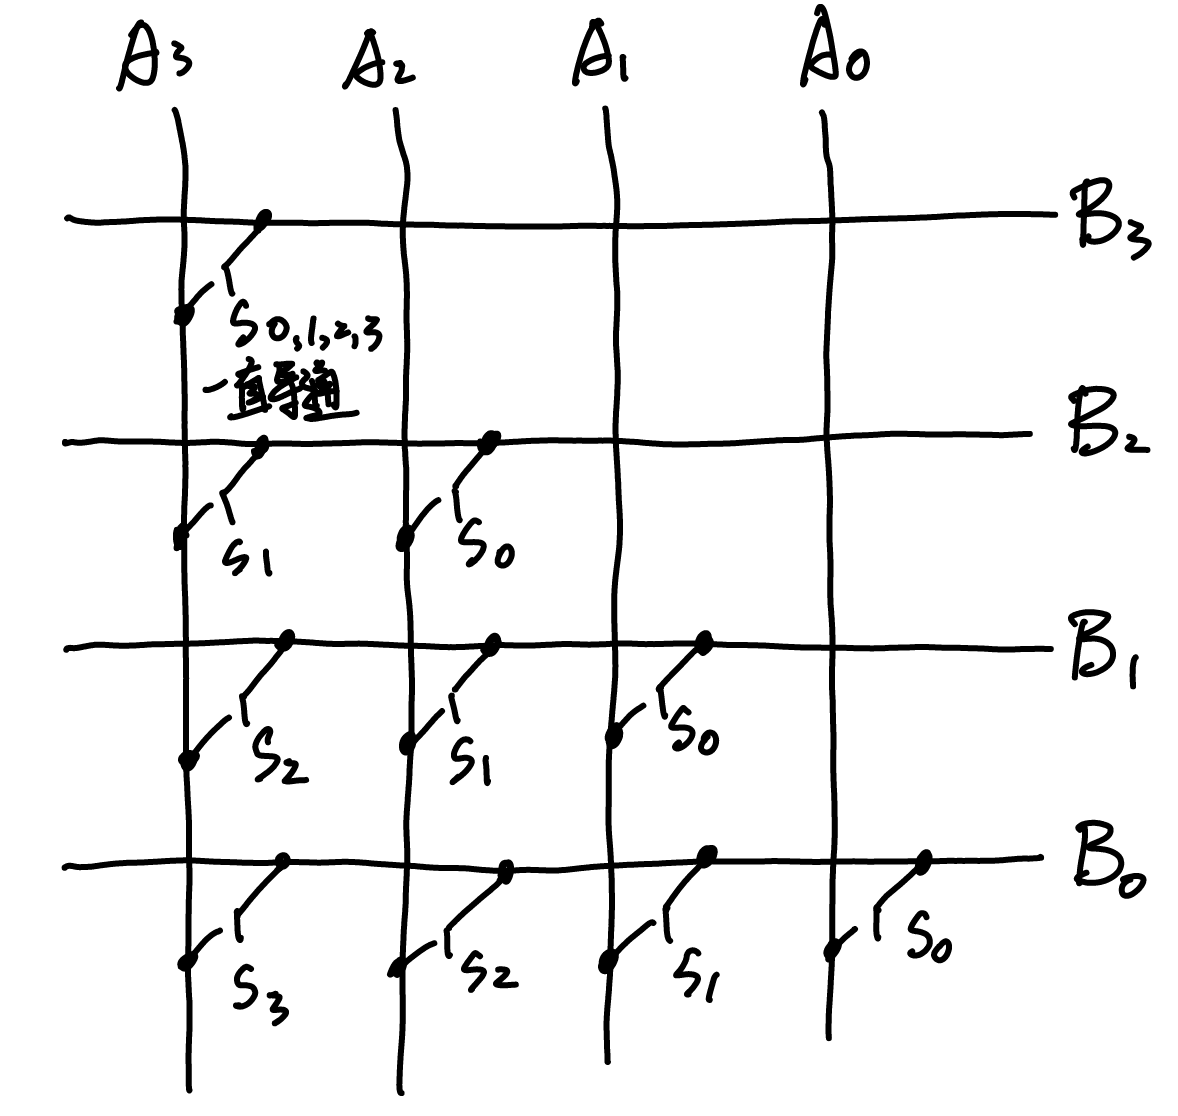 A3 A2 A1 A0
B3
S0,1,2,3
一直导通
B2
S1 S0
B1
S2 S1 S0
B0
S3 S2 S1 S0